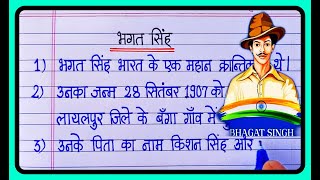 भगत सिंह
1) भगत सिंह भारत के एक महान थे।
2) उनका जन्म 28 सितंबर 1907 को
लायलपुर जिले के बँगा गाँव में
3) उनके पिता का नाम किशन सिंह और
BHAGAT SINGH